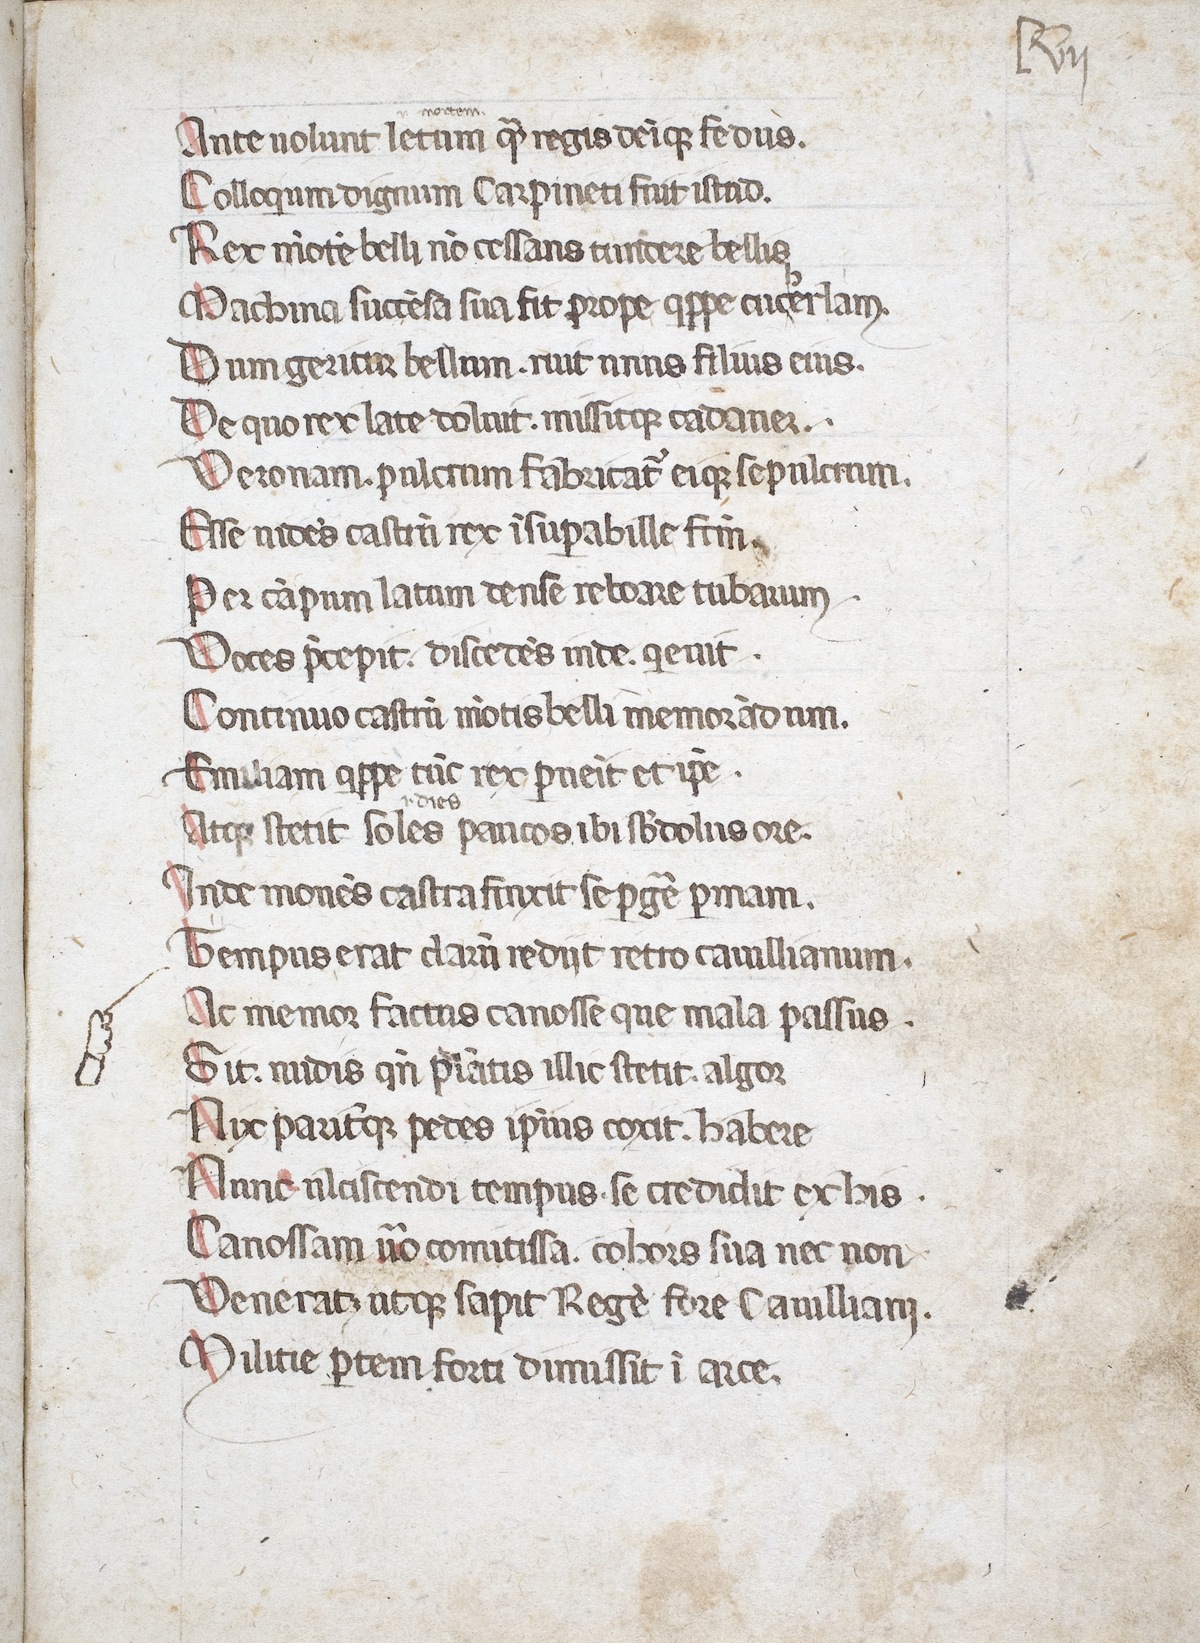 Rvij
.i. mortem.
Ante uolunt letum qᷓ regis deiq; fedus.
Colloquium dignum Carpineti fuit istud.
Rex mōtē belli nō cessans tundere bellis
Machina succēsa sua fit ꝓpe qͥppe cucb̾rlam.
Dum geritur bellum . ruit unus filius eius.
De quo rex late doluit. missitq; cadauer.
Veronam. pulcrum fabricat᷑ eiq; sepulcrum.
Esse uidēs castrū rex īsupabille frīn.
Per cāpum latum dense reboare tubarum
Voces p̄cepit. discedēs inde. qeuit .
Continuo castrū mōtis belli memorādum.
Emiliam qͥppe tūc rex ꝑueit et ip̄e .
.i. dies
Atq; stetit soles paucos ibi sb̄dolus ore.
Inde mouēs castra finxit se ꝑgē parmam.
Tempus erat clarū redijt retro cauillianum.
Ac memor factus canosse que mala passus .
Sit. nudis qn̄ plātis illic stetit. algor
Nix parit᷑q; pedes ip̄ius coxit. habere
Nunc ulciscendi tempus. se credidit ex his .
Canossam ūo comitissa. cohors sua nec non
Venerat; utq; sapit Regē fore Cauilliam.
Militie ꝑtem forti dimissit ī arce.